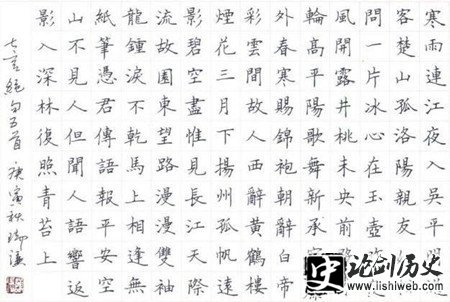 寒雨連江夜入吳平明
客楚山孤洛陽親友
問一片冰心在玉壺
風開露井桃未央前
輪高平陽歌舞新承
外春寒賜錦袍朝辭白帝
彩雲間故人西辭黃鶴樓
煙花三月下揚州孤帆遠
影碧空盡惟見長江天際
流故園東望路漫漫雙袖
龍鍾淚不乾馬上相逢無
紙筆憑君傳語報平安空
山不見人但聞人語響返
影入深林復照青苔上
七言絕句五首 庚寅秋
史 论剑历史
www.lishiweb.com